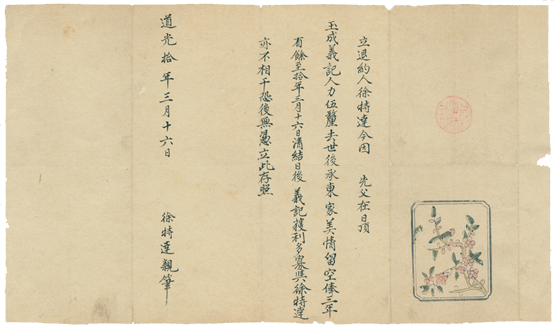 立退約人徐特達今因 先父在日頂
玉成義記人力伍釐去世後承東家美情留空俸三年
有餘至拾年三月十六日清結日後 義記獲利多寡與徐特達
亦不相干恐後無憑立此存照
道光拾年三月十六日
徐特達親筆